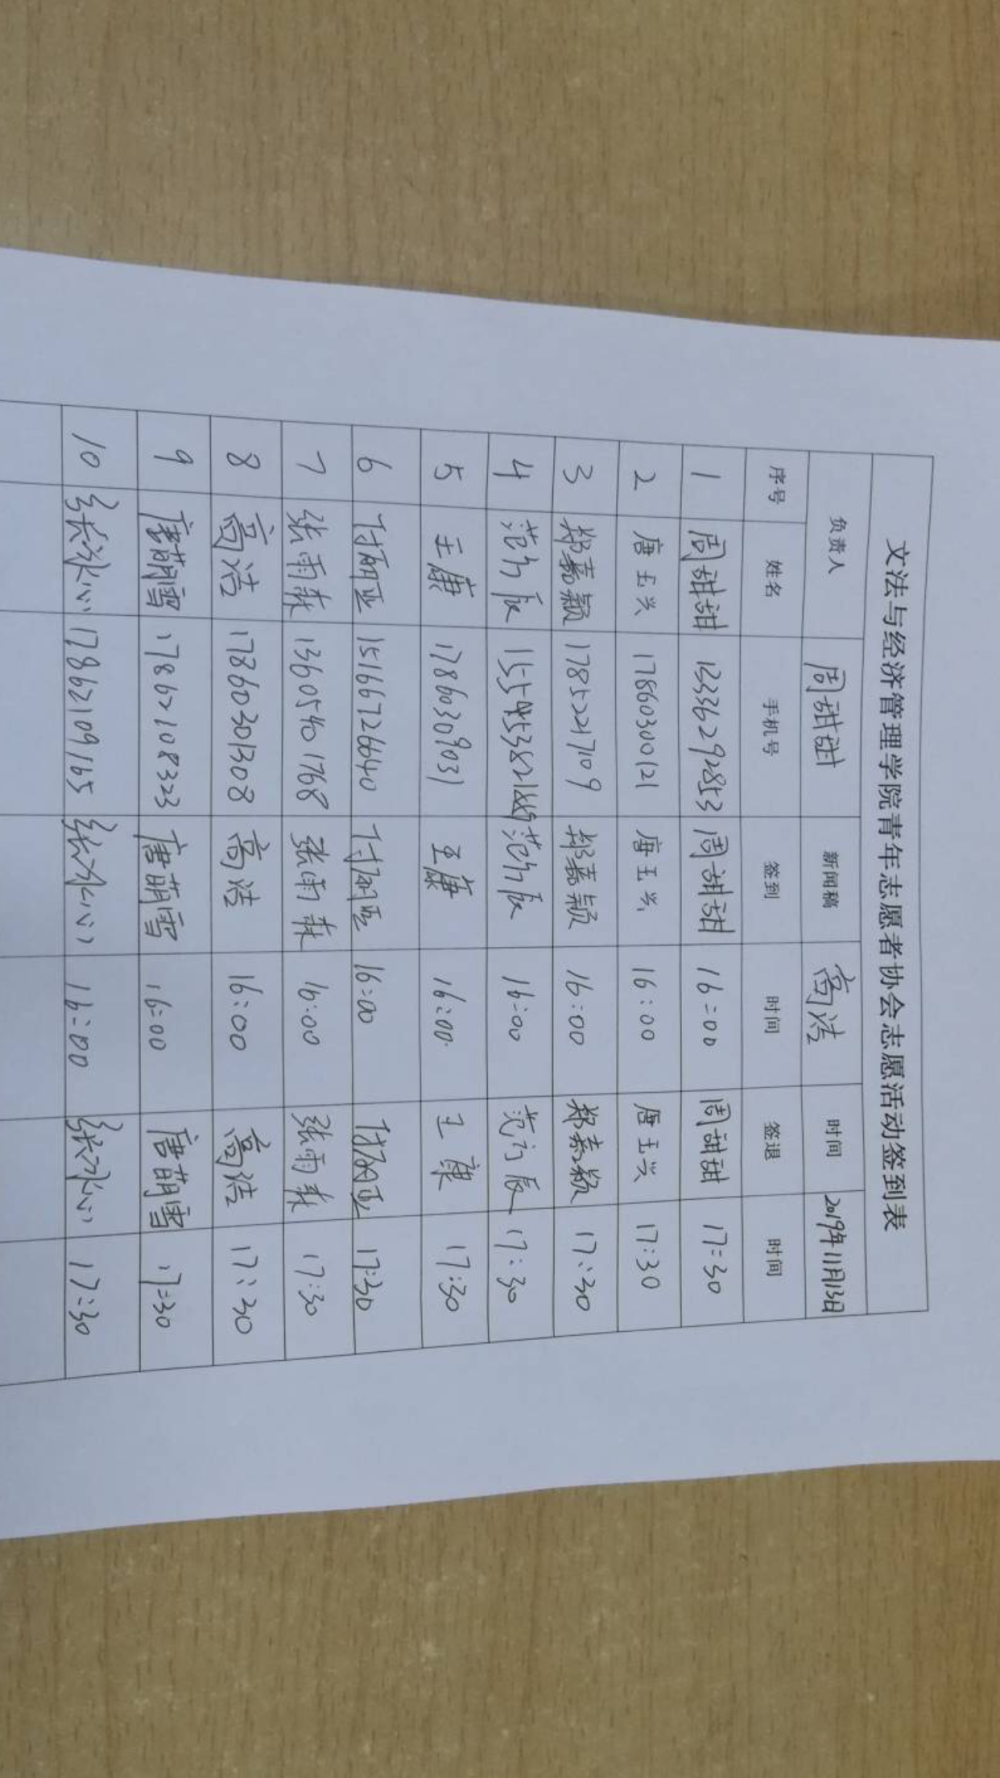 文法与经济管理学院青年志愿者协会志愿活动签到表
负责人 周甜甜 新闻稿 高浩 时间 2019年11月13日
序号 姓名 手机号 签到 时间 签退 时间
1 周甜甜 周甜甜 16:00 周甜甜 17:30
2 唐玉兴 17860300121 唐玉兴 16:00 唐玉兴 17:30
3 郑嘉颖 17852217109 郑嘉颖 16:00 郑嘉颖 17:30
4 16:00 17:30
5 王康 17863039031 王康 16:00 王康 17:30
6 付丽亚 15166726640 付丽亚 16:00 付丽亚 17:30
7 张雨森 13605401768 张雨森 16:00 张雨森 17:30
8 高浩 17860301308 高浩 16:00 高浩 17:30
9 唐萌雪 17862108323 唐萌雪 16:00 唐萌雪 17:30
10 张冰心 17862109165 张冰心 16:00 张冰心 17:30